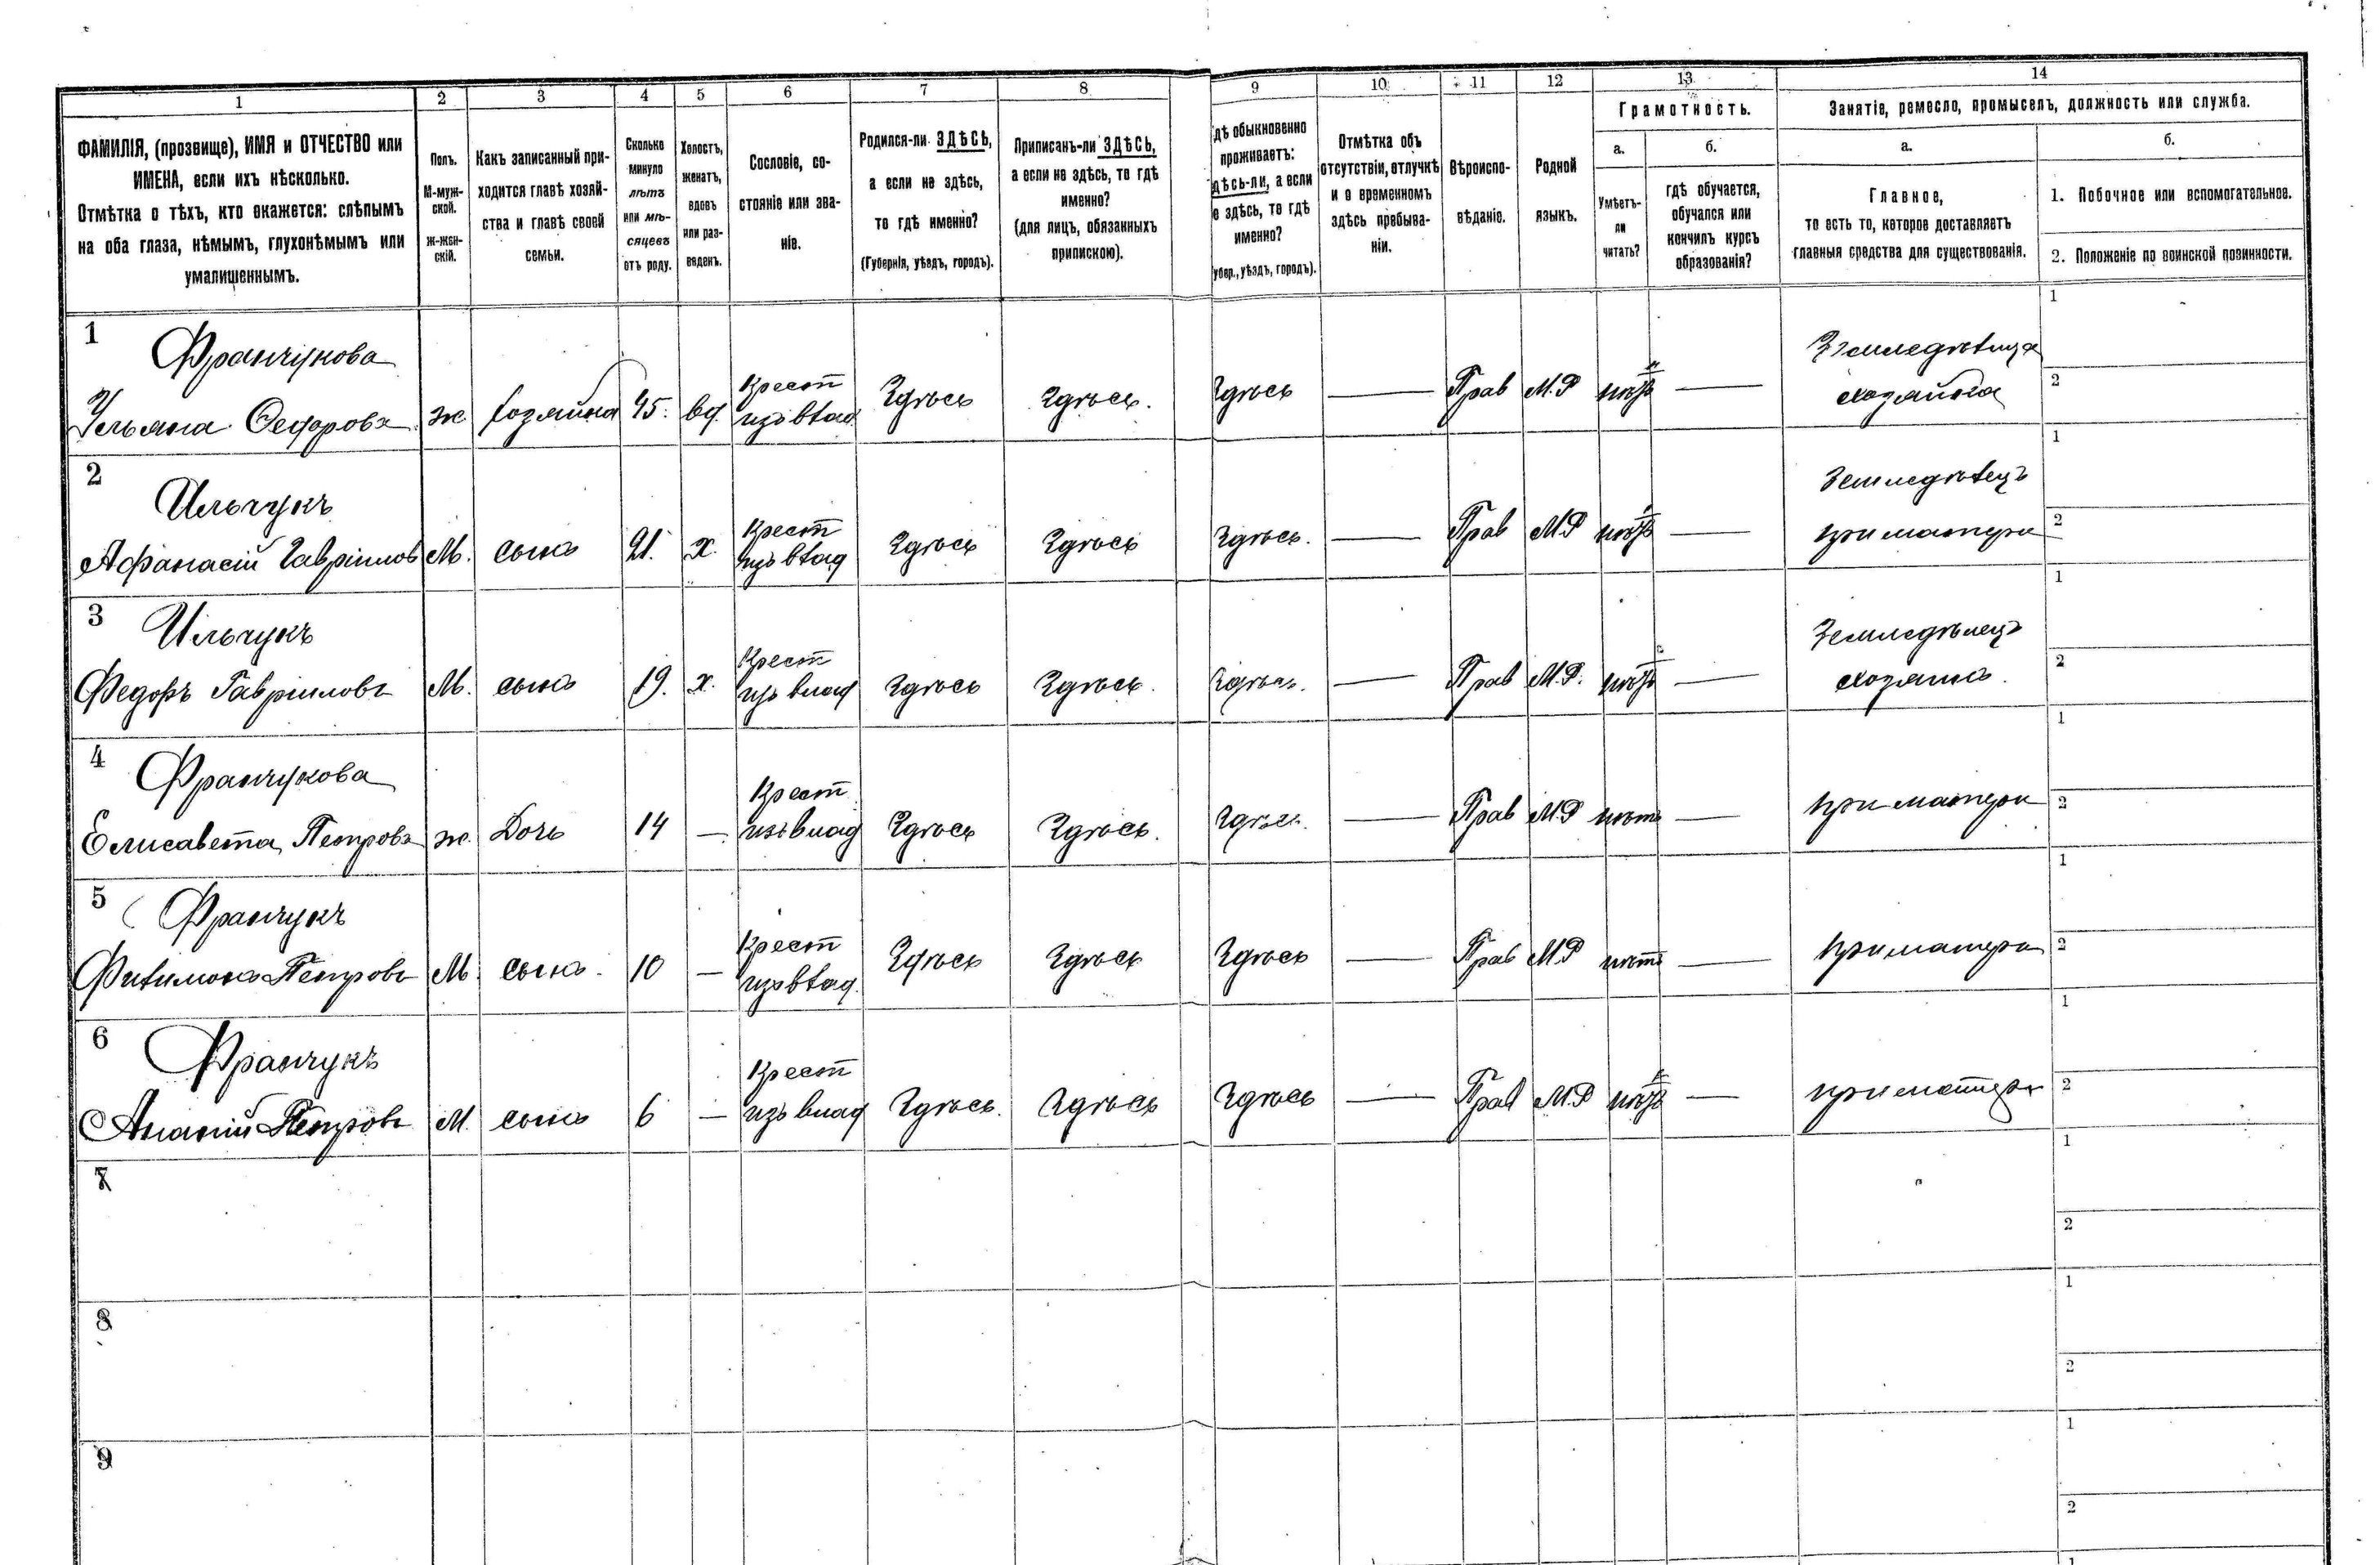 1 2 3 4 5 6 7 8 9 10 11 12 13 14
ФАМИЛІЯ, (прозвище), ИМЯ и ОТЧЕСТВО или
ИМЕНА, если ихъ нѣсколько.
Отмѣтка о тѣхъ, кто окажется: слѣпымъ
на оба глаза, нѣмымъ, глухонѣмымъ или
умалишеннымъ.
Полъ.
М-муж-
ской.
ж-жен-
скій.
Какъ записанный при-
ходится главѣ хозяй-
ства и главѣ своей
семьи.
Сколько
минуло
лѣтъ
или мѣ-
сяцевъ
отъ роду.
Холостъ,
женатъ,
вдовъ
или раз-
веденъ.
Сословіе, со-
стояніе или зва-
ніе.
Родился-ли ЗДѢСЬ,
а если не здѣсь,
то гдѣ именно?
(Губернія, уѣздъ, городъ).
Приписанъ-ли ЗДѢСЬ,
а если не здѣсь, то гдѣ
именно?
(для лицъ, обязанныхъ
припискою).
дѣ обыкновенно
проживаетъ:
дѣсь-ли, а если
е здѣсь, то гдѣ
именно?
убер., уѣздъ, городъ).
Отмѣтка объ
отсутствіи, отлучкѣ
и о временномъ
здѣсь пребыва-
ніи.
Вѣроиспо-
вѣданіе.
Родной
языкъ.
Грамотность.
а.
Умѣетъ-
ли
читать?
б.
гдѣ обучается,
обучался или
кончилъ курсъ
образованія?
Занятіе, ремесло, промыселъ, должность или служба.
а.
Главное,
то есть то, которое доставляетъ
главныя средства для существованія.
б.
1. Побочное или вспомогательное.
2. Положеніе по воинской повинности.
1
Франчукова
Ульяна Федорова ж хозяйка 45. вд. Крест изъ влад Здѣсь Здѣсь. Здѣсь — Прав М.Р нѣтъ — Земледѣлица хозяйка
1
2
2
Ильчукъ
Афанасій Гавріилов М. сынъ 21. х. Крест изъ влад Здѣсь Здѣсь Здѣсь. — Прав М.Р нѣтъ — Земледѣлецъ при матери
1
2
3
Ильчукъ
Федоръ Гавріиловъ М. сынъ 19. х. Крест изъ влад Здѣсь Здѣсь. Здѣсь. — Прав М.Р. нѣтъ — Земледѣлецъ
1
2
4
Франчукова
Елисавета Петрова ж. Дочь 14 — Крест изъ влад Здѣсь Здѣсь. Здѣсь. — Прав М.Р нѣтъ — при матери
1
2
5
Франчукъ
Филимонъ Петровъ М. сынъ. 10 — Крест изъ влад. Здѣсь Здѣсь Здѣсь — Прав М.Р нѣтъ — при матери
1
2
6
Франчукъ
Ананій Петровъ М. сынъ 6 — Крест изъ влад Здѣсь. Здѣсь Здѣсь — Прав М.Р нѣтъ — при матери
1
2
7
1
2
8
1
2
9
1
2
1